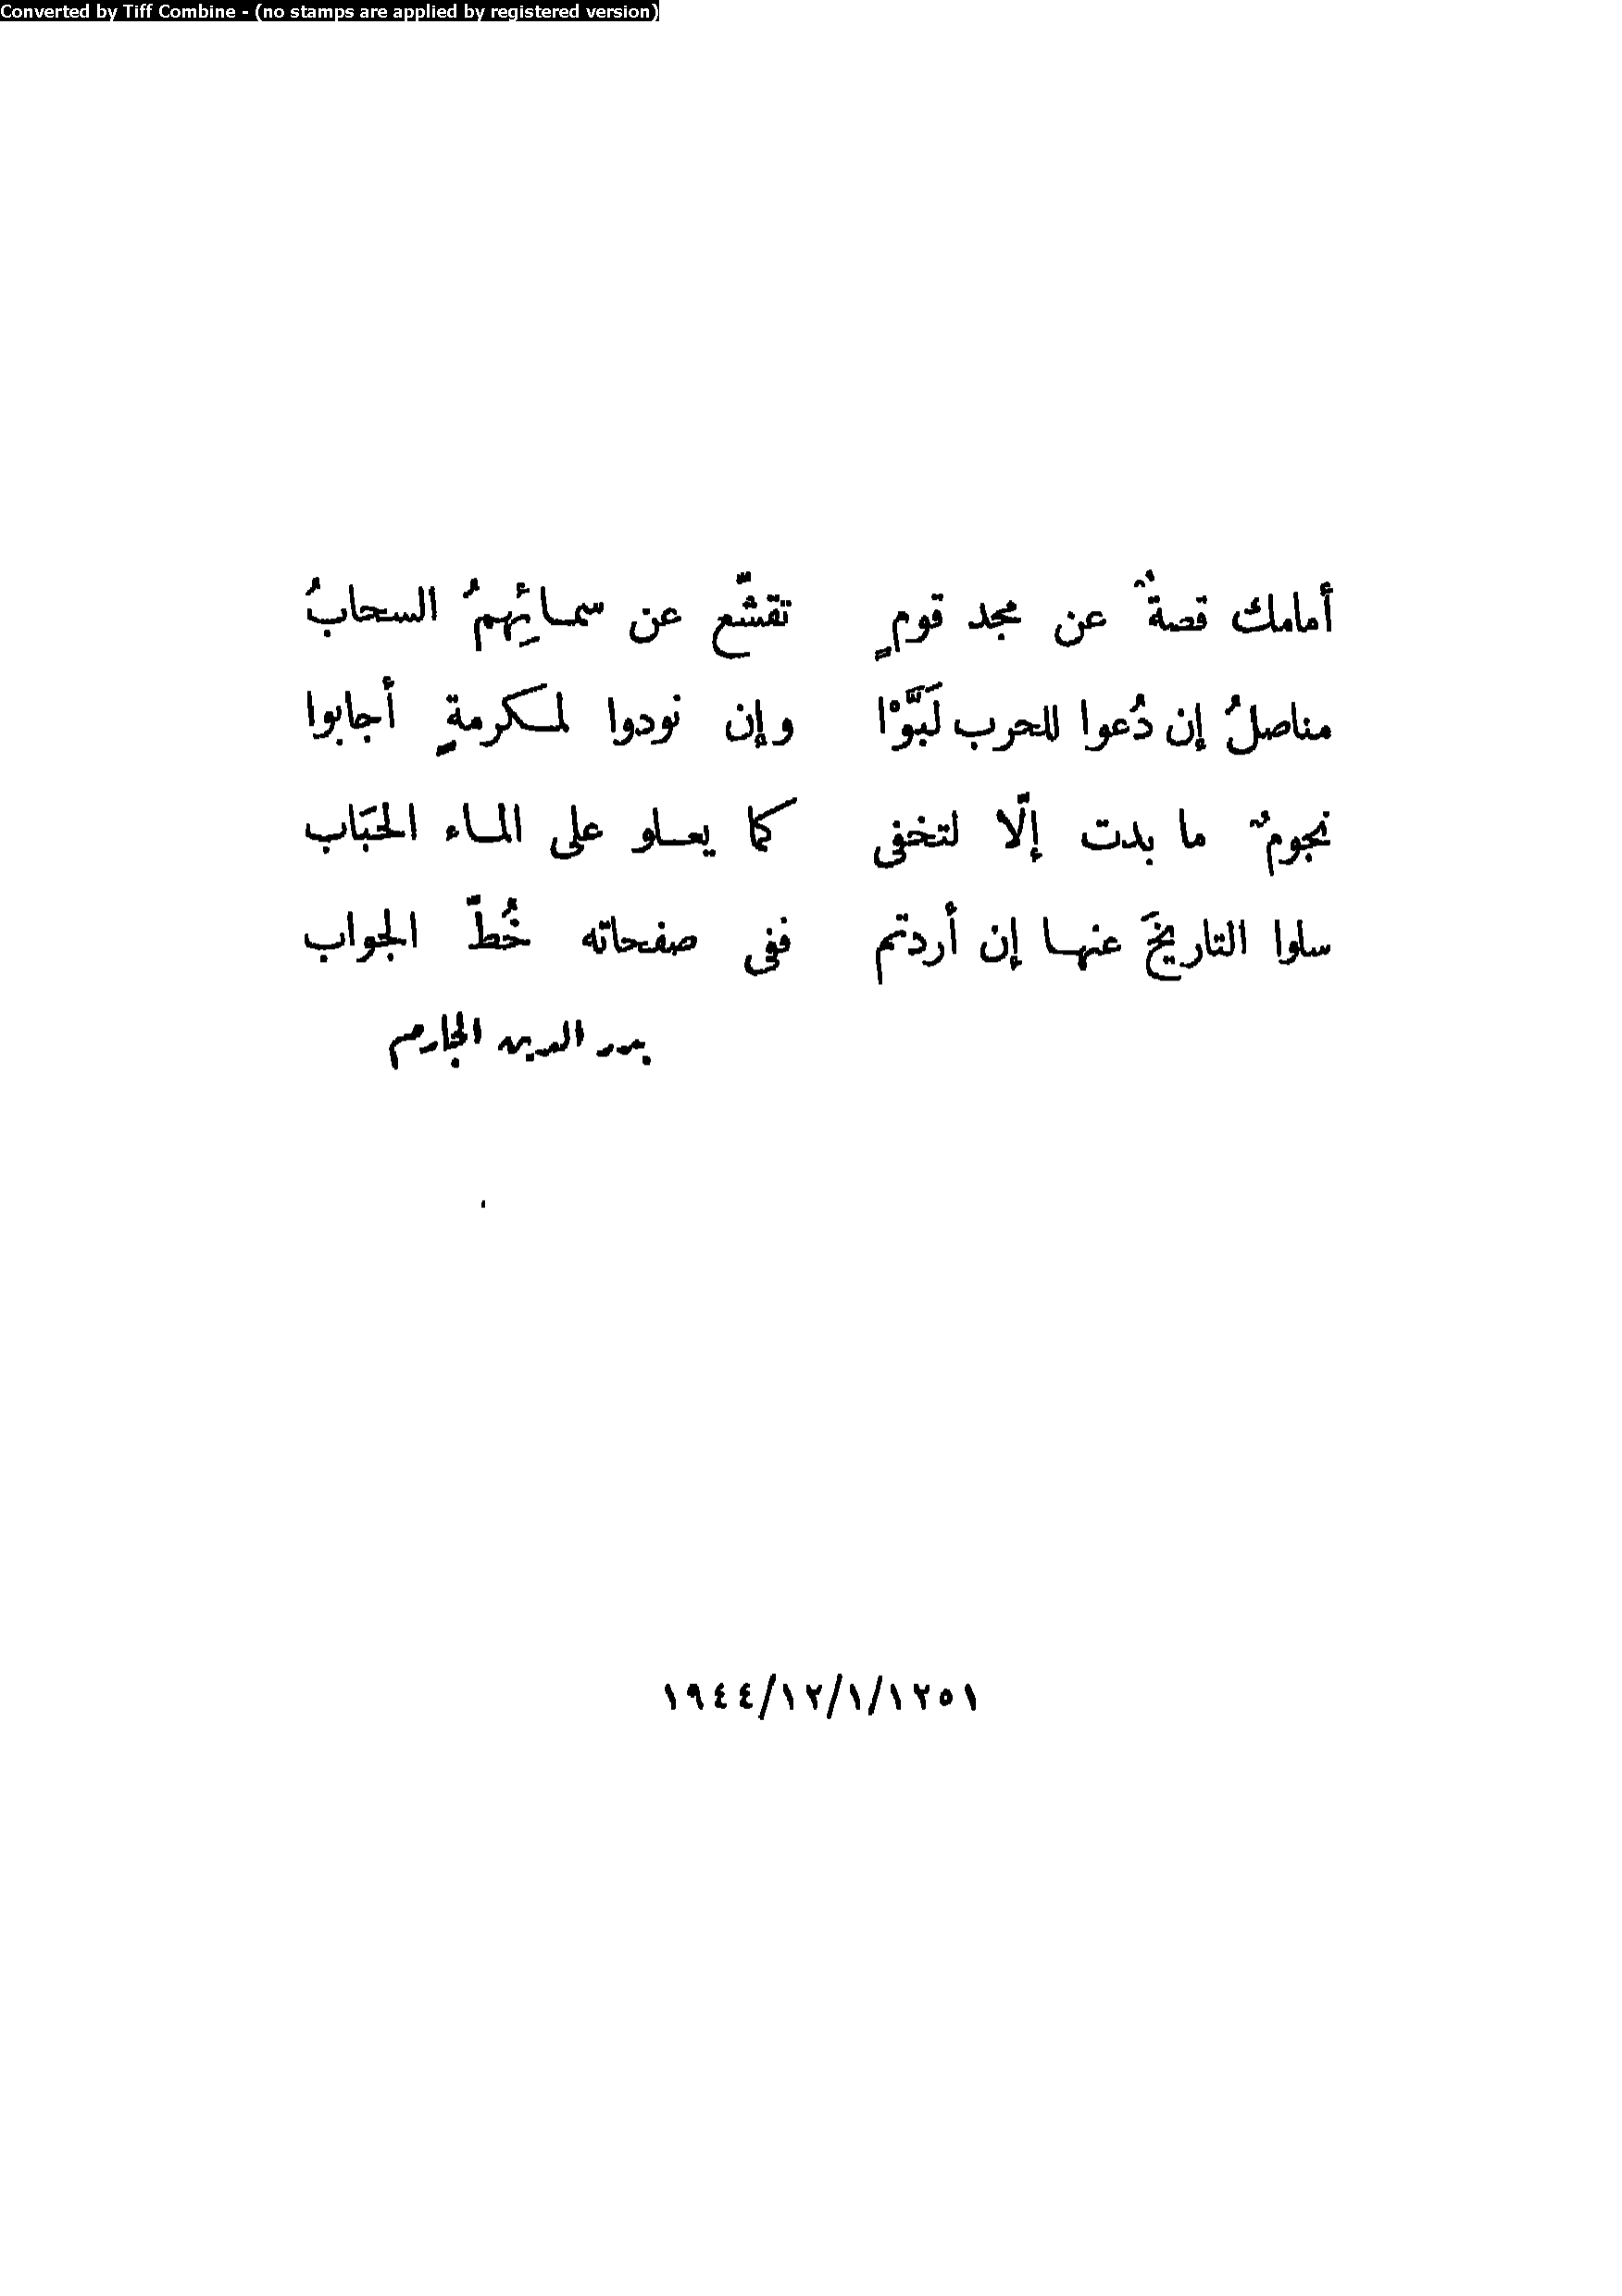 Converted by Tiff Combine - (no stamps are applied by registered version)
أمامك قصةٌ عن مجد قومٍ تقشّع عن سمائِهمُ السحابُ
مناصلُ إن دُعوا للحرب لَبَّوْا وإن نودوا لمكرمةٍ أجابوا
نجومٌ ما بدت إلّا لتخفى كما يعلو على الماء الحبَاب
سلوا التاريخَ عنها إن أردتم ففى صفحاته خُطّ الجواب
بدر الدين الجارم
١٩٤٤/١٢/١/١٢٥١